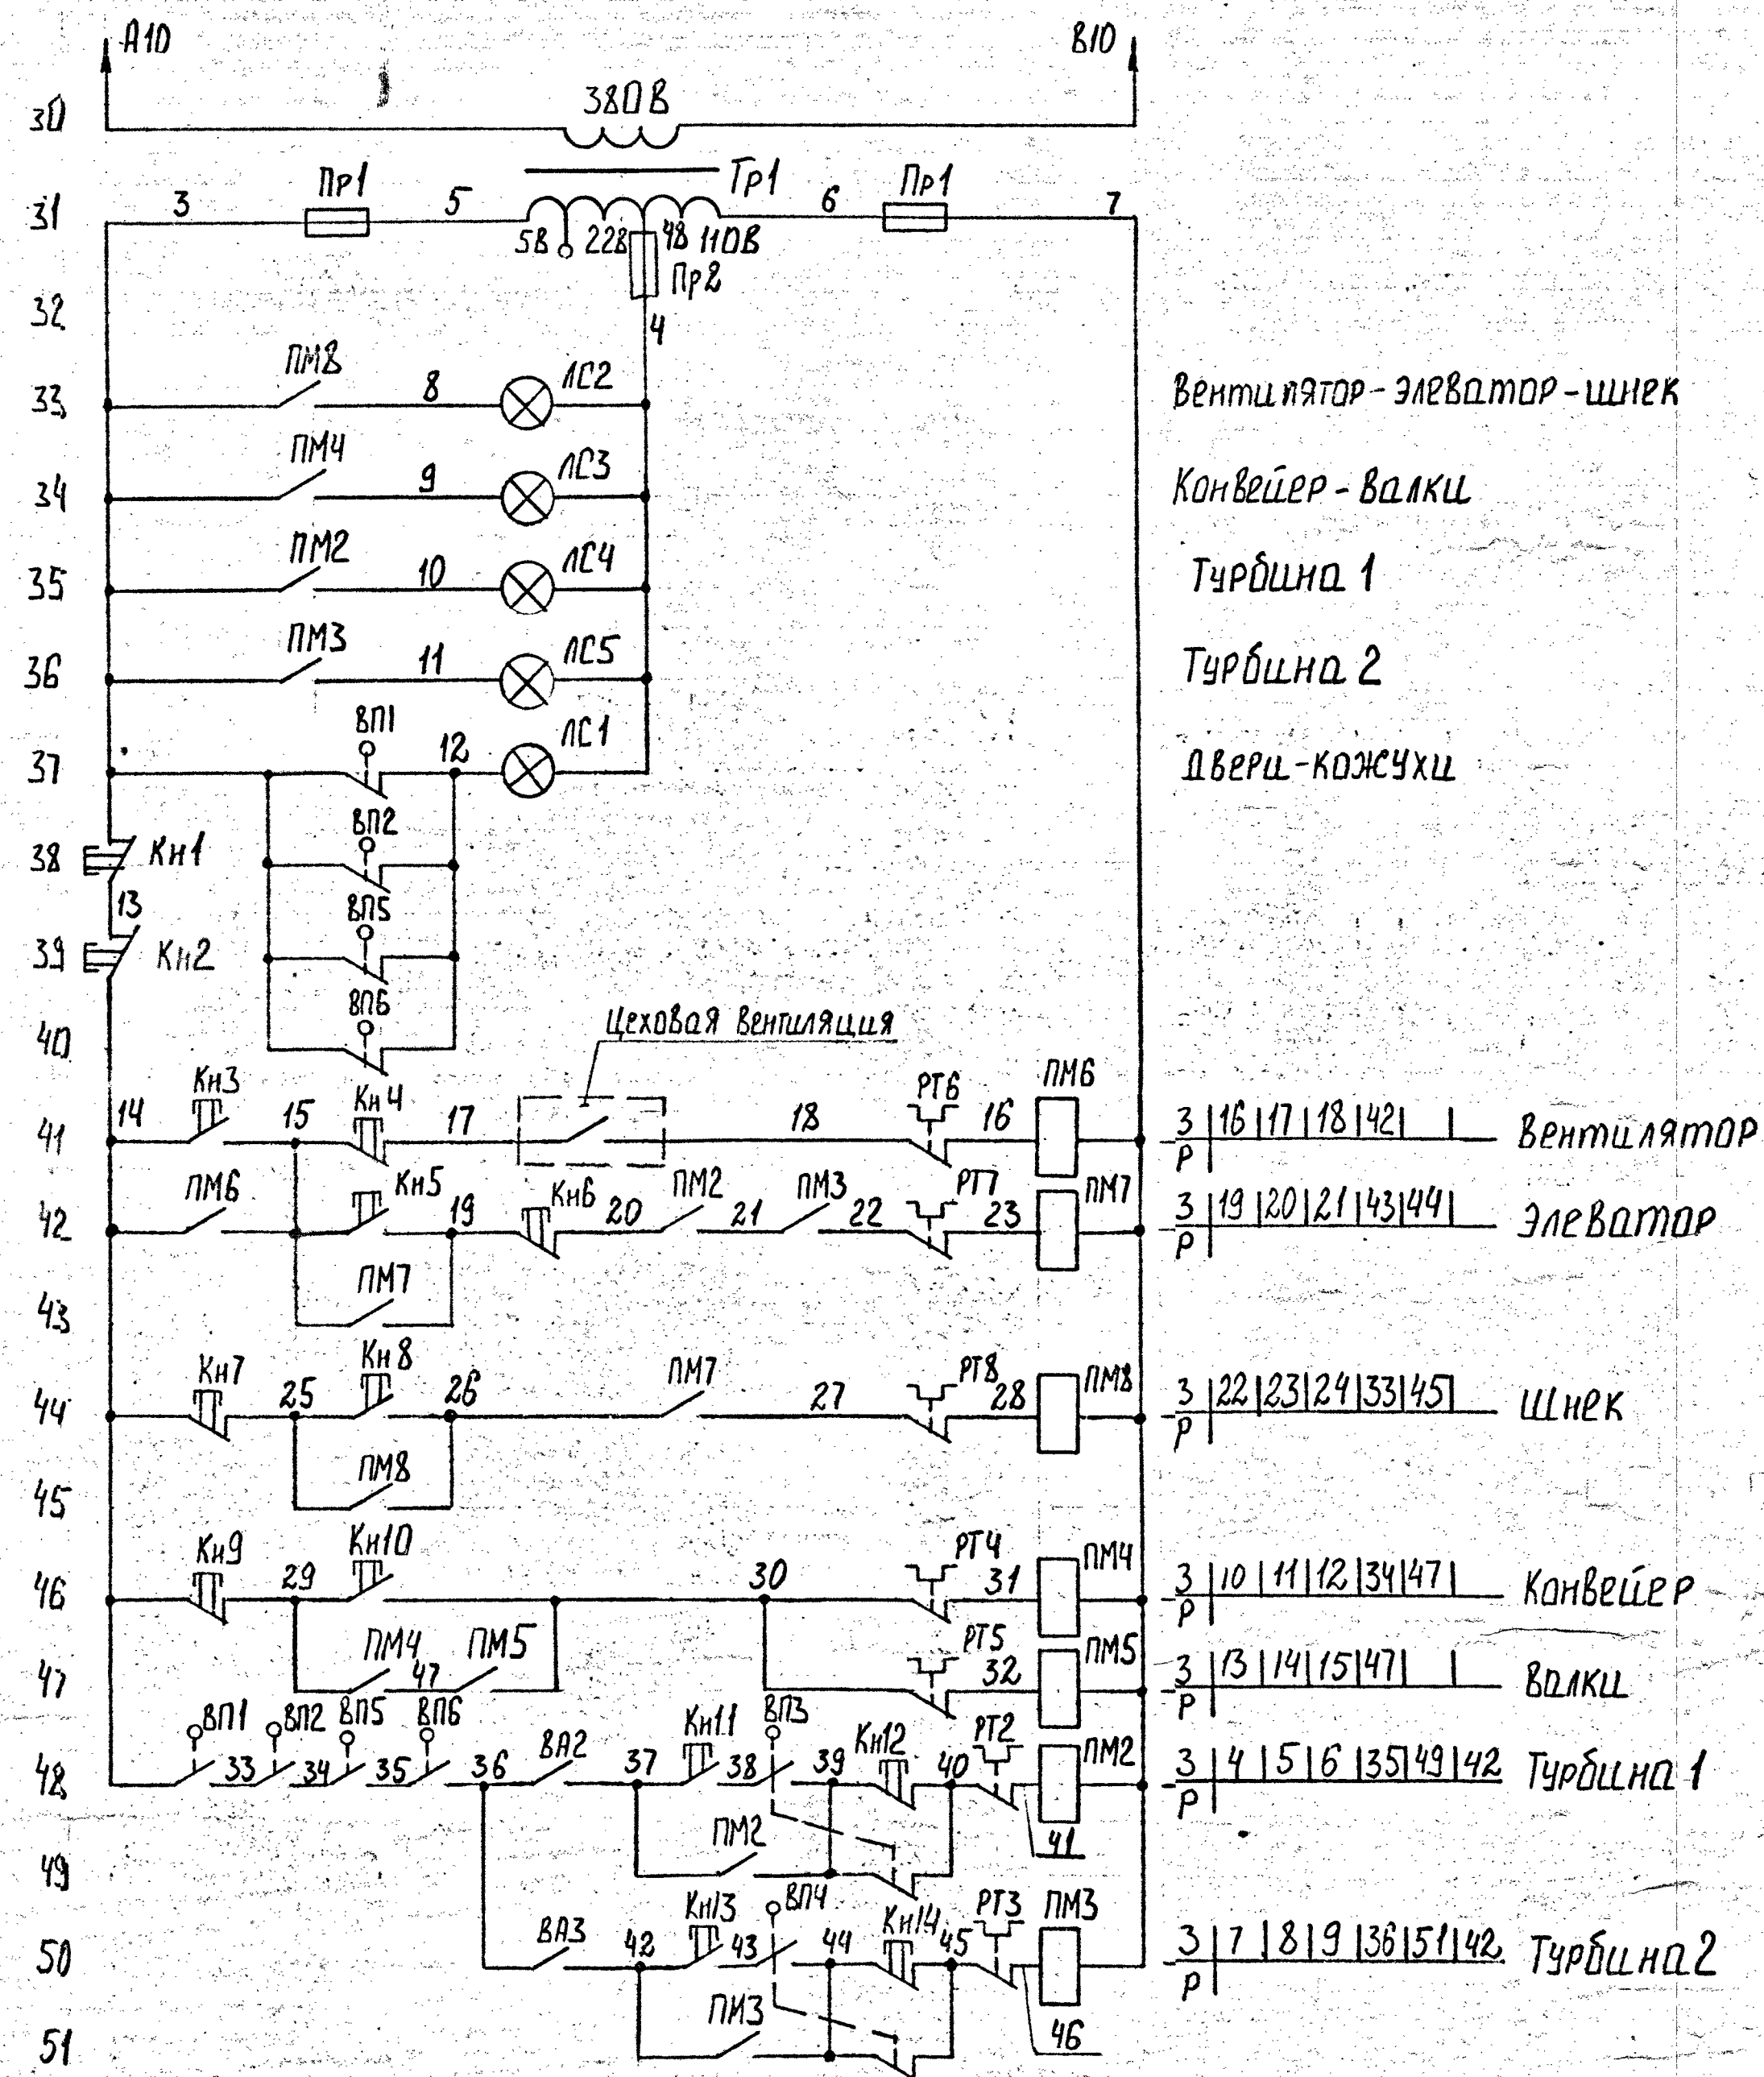 А10 В10
30 380 В
Тр1
31 3 Пр1 5 6 Пр1 7
5В 22В 4В 110В
Пр2
32 4
33 ПМ8 8 ЛС2 Вентилятор-элеватор-шнек
34 ПМ4 9 ЛС3 Конвейер-валки
35 ПМ2 10 ЛС4 Турбина 1
36 ПМ3 11 ЛС5 Турбина 2
37 ВП1 12 ЛС1 Двери-кожухи
38 Кн1 ВП2
13 ВП5
39 Кн2
ВП6
40 Цеховая вентиляция
41 14 Кн3 15 Кн4 17 18 РТ6 16 ПМ6 З Р 16 17 18 42 Вентилятор
42 ПМ6 Кн5 19 Кн6 20 ПМ2 21 ПМ3 22 РТ7 23 ПМ7 З Р 19 20 21 43 44 Элеватор
43 ПМ7
44 Кн7 25 Кн8 26 ПМ7 27 РТ8 28 ПМ8 З Р 22 23 24 33 45 Шнек
45 ПМ8
46 Кн9 29 Кн10 30 РТ4 31 ПМ4 З Р 10 11 12 34 47 Конвейер
47 ПМ4 47 ПМ5 РТ5 32 ПМ5 З Р 13 14 15 47 Валки
48 ВП1 33 ВП2 34 ВП5 35 ВП6 36 ВА2 37 Кн11 38 ВП3 39 Кн12 40 РТ2 ПМ2 З Р 4 5 6 35 49 42 Турбина 1
41
49 ПМ2
50 ВА3 42 Кн13 43 ВП4 44 Кн14 45 РТ3 ПМ3 З Р 7 8 9 36 51 42 Турбина 2
46
51 ПМ3